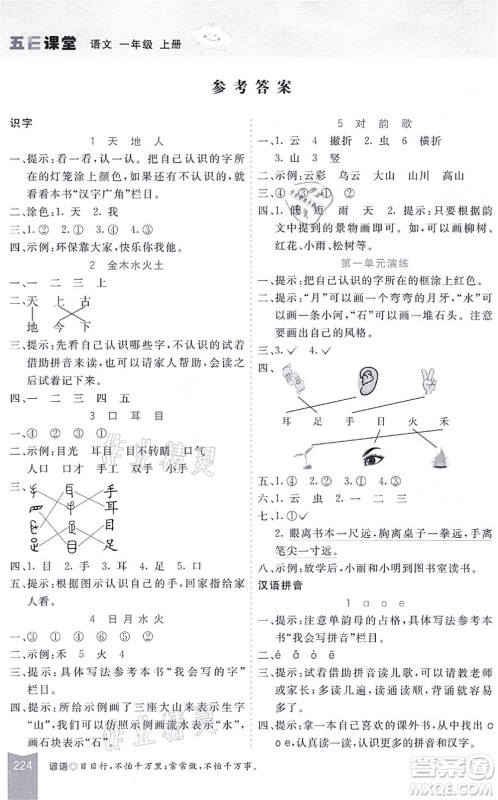 五E课堂 语文 一年级 上册
参考答案
识字
1 天 地 人
一、提示：看一看，认一认。把自己认识的字所
在的灯笼涂上颜色，如果有困难，可以试着
看一看本书“汉字广角”栏目。
二、涂色：1. 天 2. 我
三、1. ② 2. ③ 3. ① 4. ④
四、示例：环保靠大家，快乐你我他。
2 金木水火土
一、一 二 三 上
二、天 上 古
地 今 下
三、提示：先看看自己认识哪些字，不认识的试着
借助拼音来读，也可以请家人帮助，会读之
后计时读。
四、一 二 三 四 五
3 口 耳 目
一、④ ② ③ ①
二、示例：目光 耳目 目不转睛 口气
人口 口才 手工 双手 小手
三、手
耳
目
足
四、1. 手 2. 目 3. 耳 4. 足 5. 口
五、提示：根据图示认识自己的身体，回家指给家
人看。
4 日 月 水 火
一、③ ① ② ④
二、① ② ④ ⑤ ⑥
三、提示：具体写法参考本书“我会写的字”
栏目。
四、提示：所给示例画了三座大山来表示生字
“山”，我们可以仿照示例画流水表示“水”，
画石头表示“石”，画云朵表示“云”等。
5 对 韵 歌
一、1. 云 4 撇折 2. 虫 6 横折
3. 山 3 竖
二、示例：云彩 乌云 火山 山川
三、④ ③ ① ②
四、1. 低 短 雨 天 2. 提示：可以把对韵
文中提到的景物画一画，如，可以画柳树、
红花、小雨、松树等。
第一单元演练
一、提示：把自己认识的字所在的框涂上红色。
二、提示：“月”可以画一个弯弯的月牙，“水”可
以画一条小河，“石”可以画一堆石头。当
然，也可以有自己的风格。
三、1. ✓ 3. ✓
四、
耳 足 手 目 火 禾
五、1. ④ 2. ③ 3. ② 4. ①
六、1. 云 虫 山 2. 一 二 三
七、1. ✓
2. 眼离书本一尺远，胸离桌子一拳远，手离
笔尖一寸远。
八、示例：放学后，小雨和小明到图书室读书。
汉语拼音
1 ɑ o e
一、提示：注意单韵母的占格，具体写法参考本书
“我会写拼音”栏目。
二、é ɑ̌ ō è
三、提示：试着借助拼音读儿歌，也可以请教同学
或者家长。注意有节奏地朗读，还可以加上
动作去读一读。
四、提示：找来自己喜欢的课外书，从中找出
224 谚语 日日行，不怕千万里；常常做，不怕千万事。